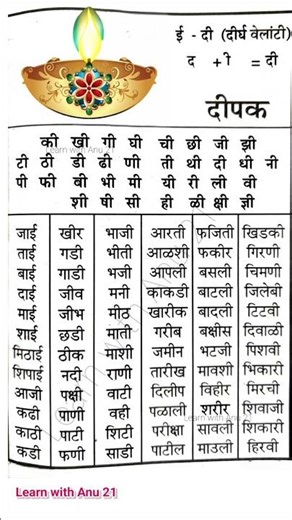 ई - दी (दीर्घ वेलांटी)
द + ी = दी
दीपक
की खी गी घी ची छी जी झी
टी ठी डी ढी णी ती थी दी धी नी
पी फी बी भी मी यी री ली वी
शी षी सी ही ळी क्षी ज्ञी
जाई खीर भाजी आरती फजिती खिडकी
ताई गडी भीती आळशी फकीर गिरणी
बाई गाडी भजी आपली बसली चिमणी
दाई जीव मनी काकडी बाटली जिलेबी
माई जीभ मीठ खारीक बादली टिटवी
शाई छडी माती गरीब बक्षीस दिवाळी
मिठाई ठीक माशी जमीन भटजी पिशवी
शिपाई नदी राणी तारीख मावशी भिकारी
आजी पक्षी वाटी दिलीप विहीर मिरची
कढी पाणी वही पळाली शरीर शिवाजी
काठी पाटी शिटी परीक्षा सावली शिकारी
कडी फणी साडी पाटील माउली हिरवी
Learn with Anu 21
Learn with Anu 21
Learn with Anu 21
Learn with Anu 21